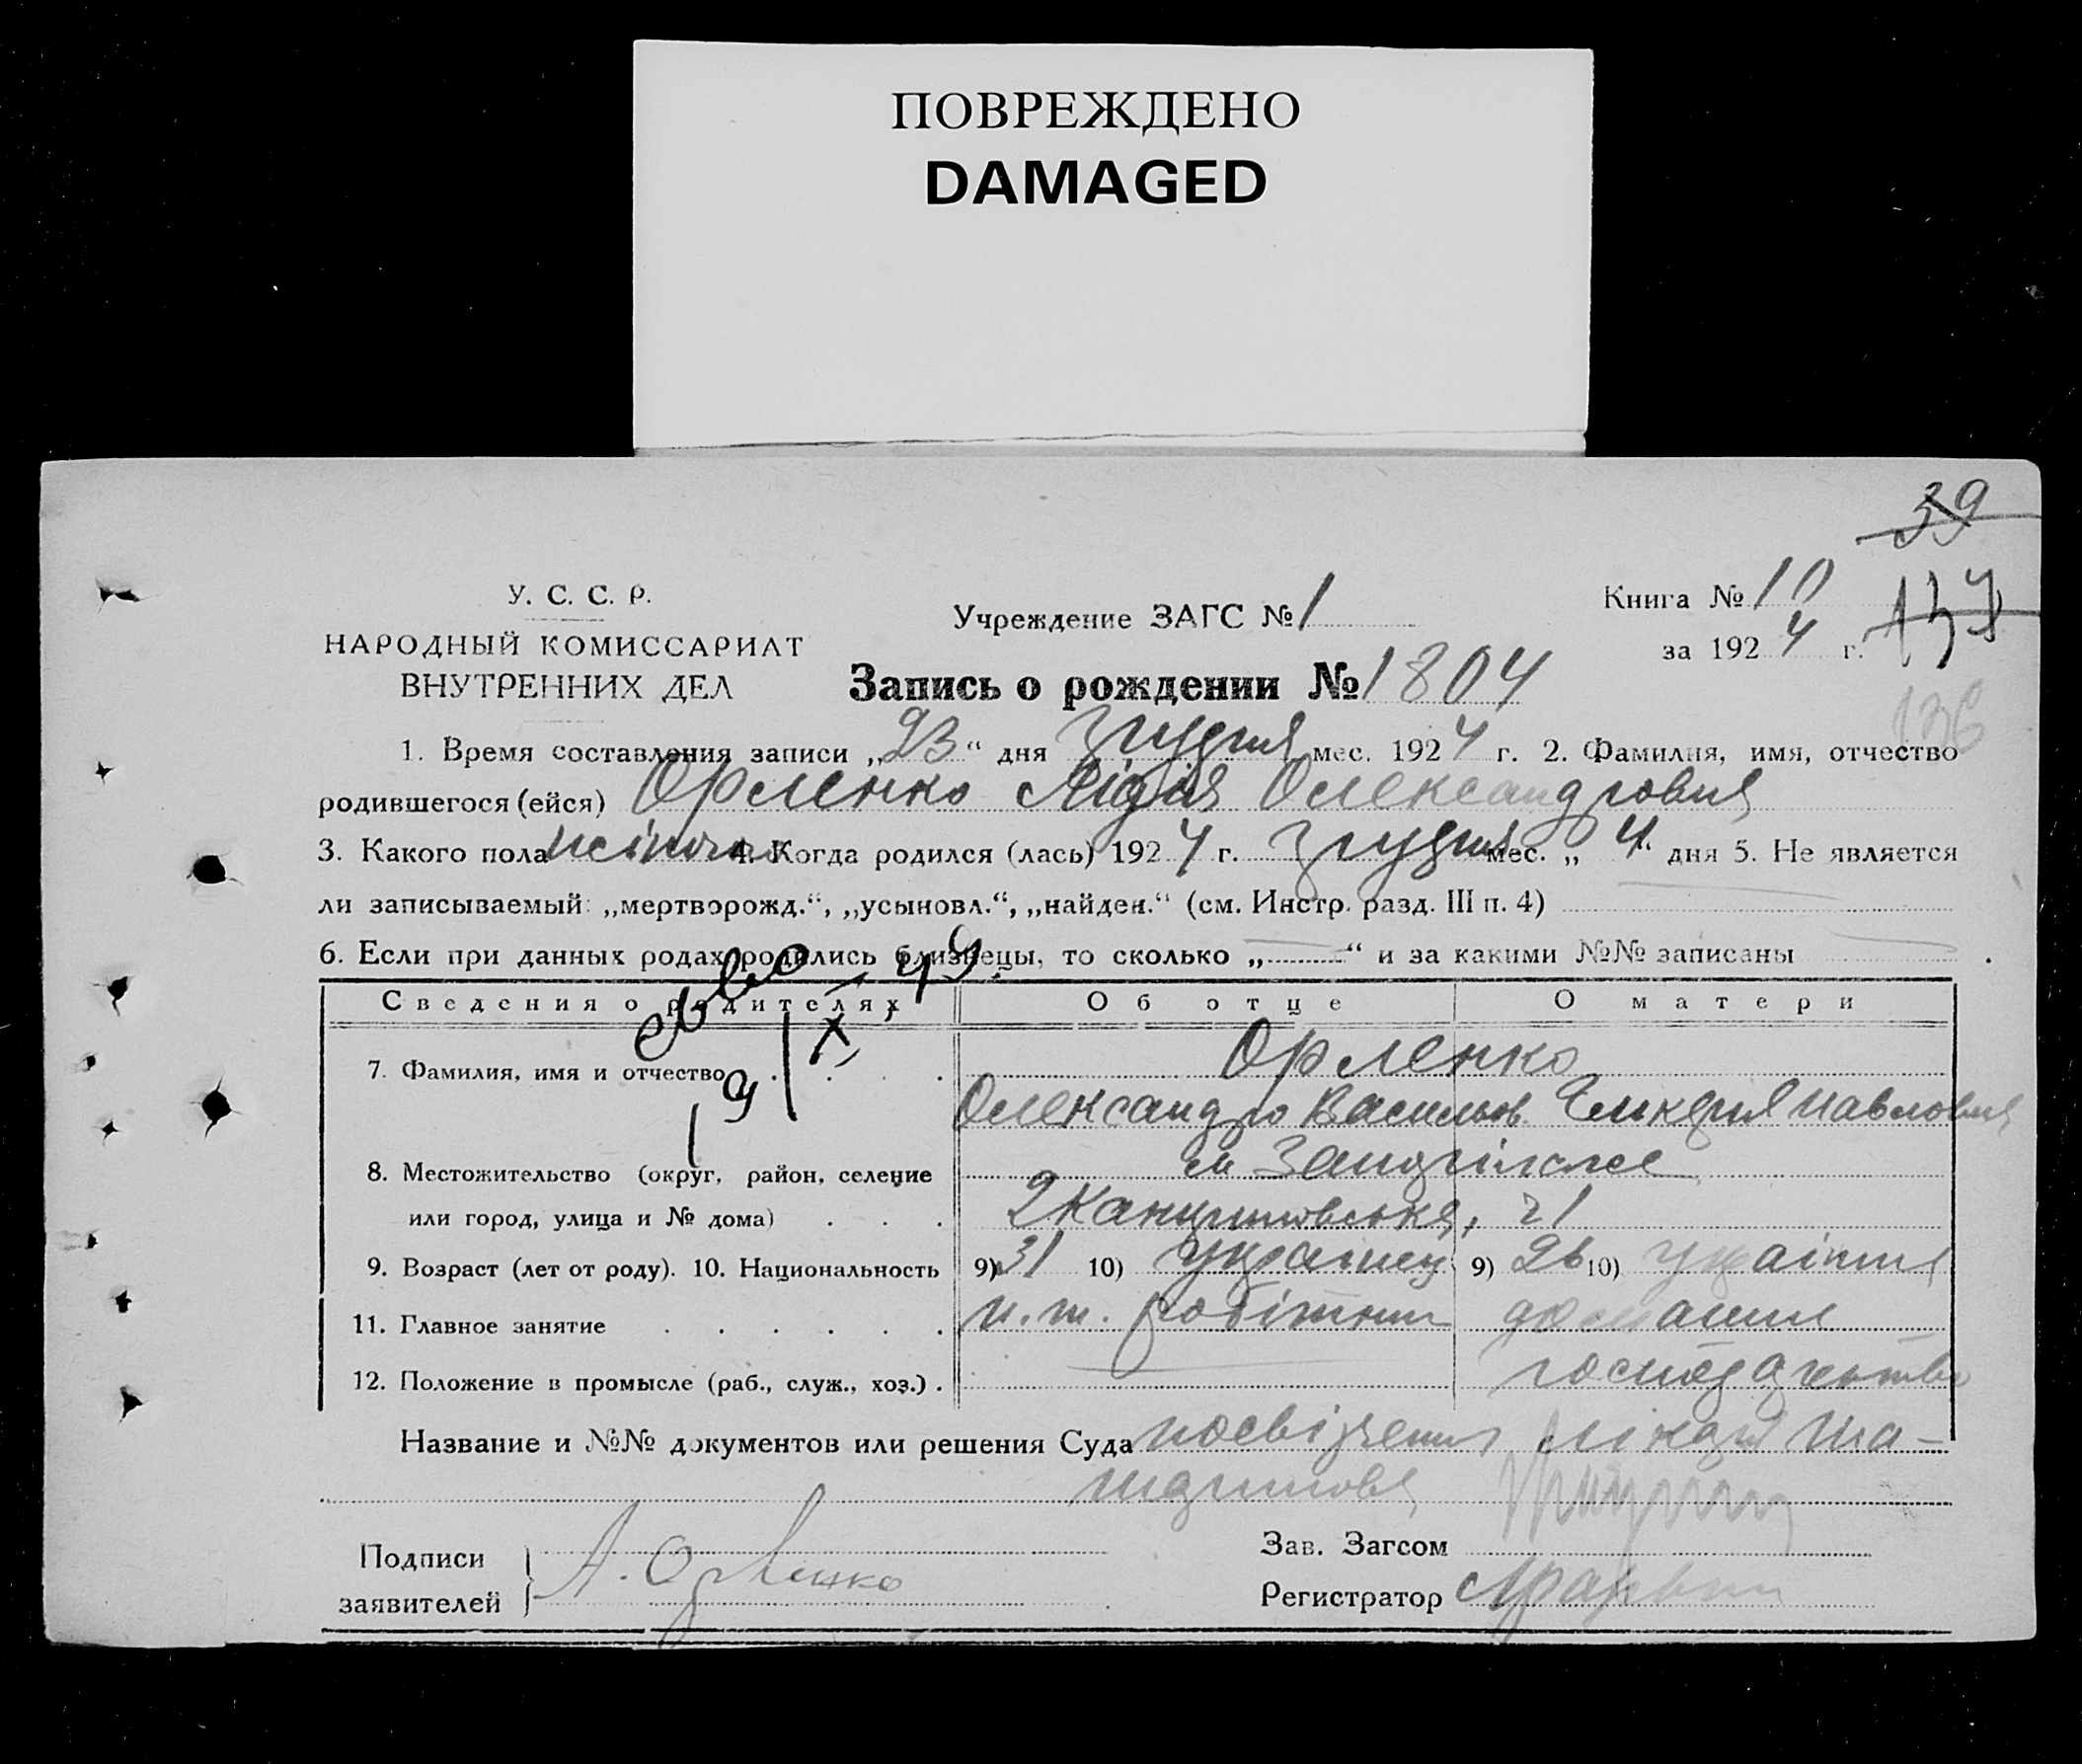 ПОВРЕЖДЕНО
DAMAGED
39
У. С. С. Р.
НАРОДНЫЙ КОМИССАРИАТ
ВНУТРЕННИХ ДЕЛ
Учреждение ЗАГС № 1
Книга № 10
за 1924 г.
137
136
Запись о рождении № 1804
1. Время составления записи „23“ дня грудня мес. 1924 г. 2. Фамилия, имя, отчество
родившегося (ейся) Орленко Лідія Олександровна
3. Какого пола жіночо 4. Когда родился (лась) 1924 г. грудня мес. „4“ дня 5. Не является
ли записываемый: „мертворожд.“, „усыновл.“, „найден.“ (см. Инстр. разд. III п. 4)
6. Если при данных родах родились близнецы, то сколько „—“ и за какими №№ записаны
Сведения о родителях Об отце О матери
7. Фамилия, имя и отчество Орленко
Олександро Васильов. Павловна
8. Местожительство (округ, район, селение
или город, улица и № дома) 21
9. Возраст (лет от роду). 10. Национальность 9) 31 10) українец 9) 26 10) українка
11. Главное занятие робітник домашнє
12. Положение в промысле (раб., служ., хоз.) господарство
Название и №№ документов или решения Суда посвідчення лікаря
Подписи
заявителей А. Орленко
Зав. Загсом
Регистратор